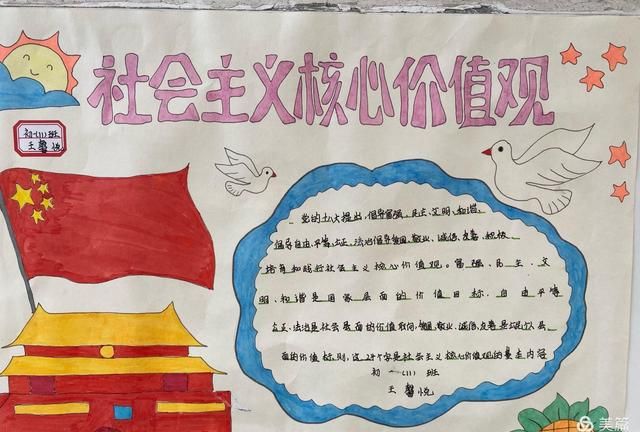 社会主义核心价值观
初一(1)班
王馨悦
党的十八大提出,倡导富强、民主、文明、和谐,
倡导自由、平等、公正、法治,倡导爱国、敬业、诚信、友善,积极
培育和践行社会主义核心价值观。富强、民主、文
明、和谐是国家层面的价值目标,自由平等
公正、法治是社会层面的价值取向,爱国、敬业、诚信、友善是公民个人层
面的价值标则,这24个字是社会主义核心价值观的基本内容
初一(1)班
王馨悦
美篇